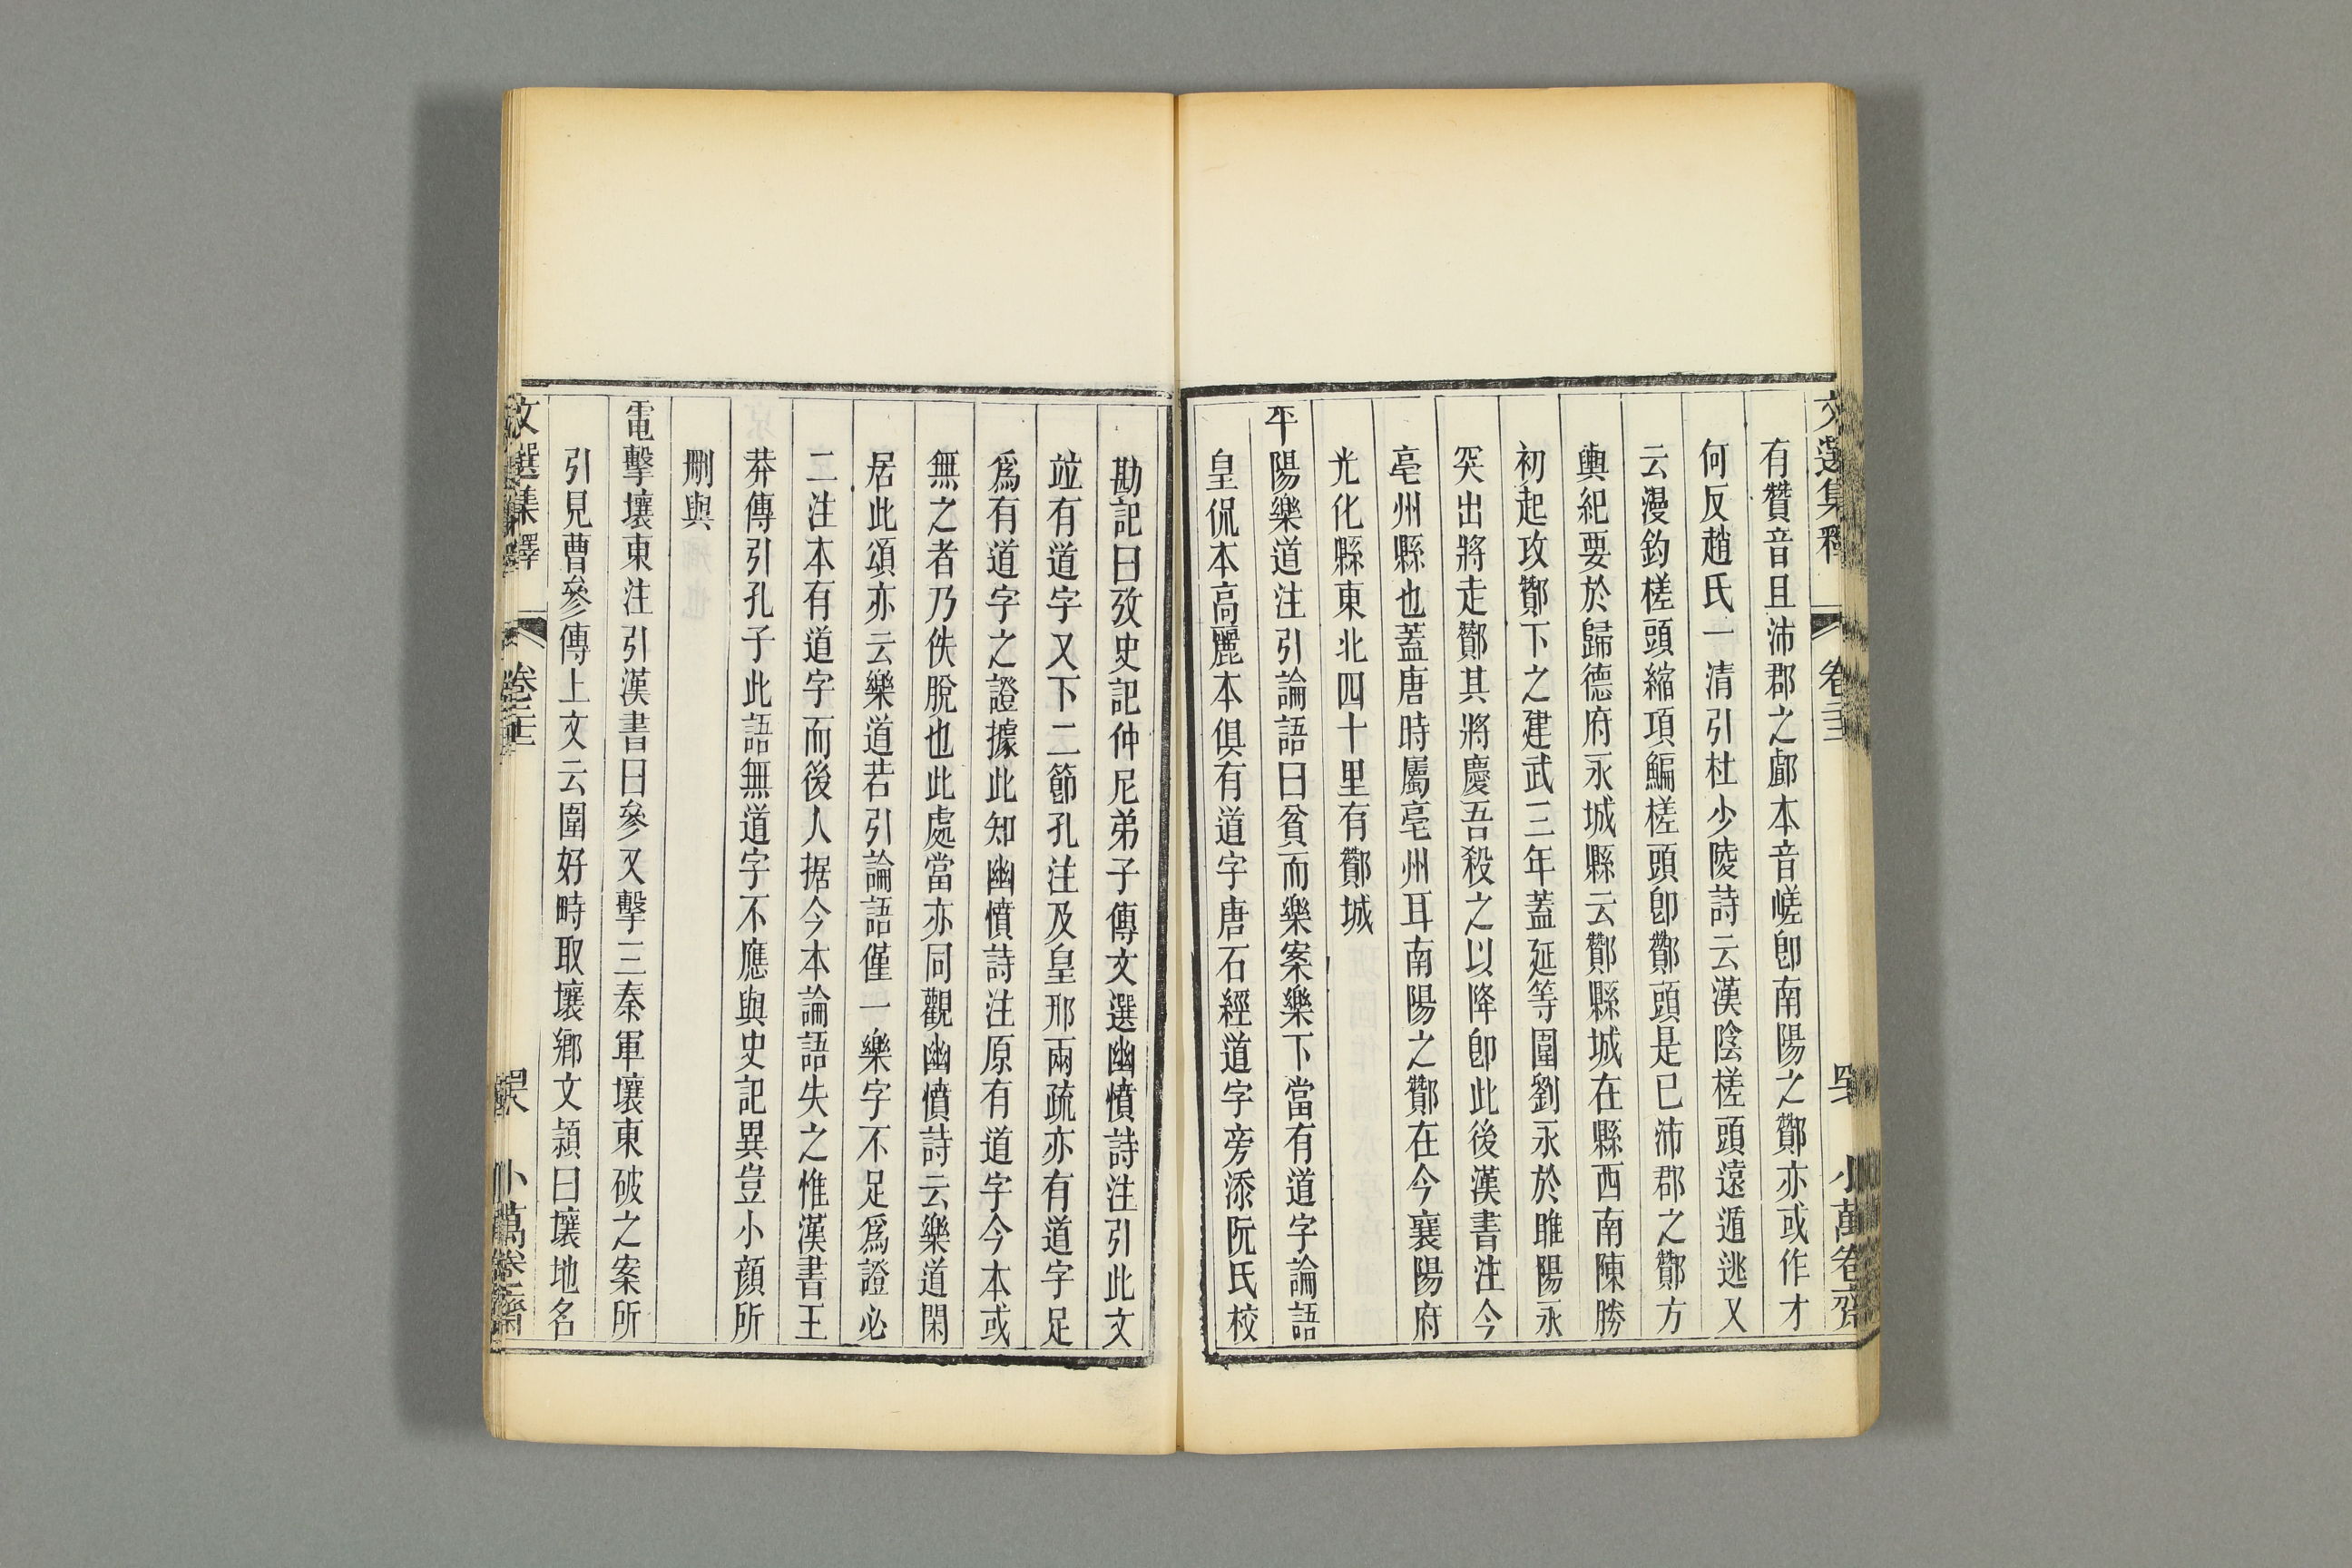 文選集釋 卷二十三 小萬卷齋
有贊音且沛郡之酇本音嵯卽南陽之酇亦或作才
何反趙氏一清引杜少陵詩云漢陰槎頭遠遁逃又
云漫釣槎頭縮項鯿槎頭卽酇頭是已沛郡之酇方
輿紀要於歸德府永城縣云酇縣城在縣西南陳勝
初起攻酇下之建武三年蓋延等圍劉永於睢陽永
突出將走酇其將慶吾殺之以降卽此後漢書注今
亳州縣也蓋唐時屬亳州耳南陽之酇在今襄陽府
光化縣東北四十里有酇城
平陽樂道注引論語曰貧而樂案樂下當有道字論語
皇侃本高麗本俱有道字唐石經道字旁添阮氏校
勘記曰攷史記仲尼弟子傳文選幽憤詩注引此文
竝有道字又下二節孔注及皇邢兩疏亦有道字足
爲有道字之證據此知幽憤詩注原有道字今本或
無之者乃佚脫也此處當亦同觀幽憤詩云樂道閑
居此頌亦云樂道若引論語僅一樂字不足爲證必
二注本有道字而後人据今本論語失之惟漢書王
莽傳引孔子此語無道字不應與史記異豈小顏所
刪與
電擊壤東注引漢書曰參又擊三秦軍壤東破之案所
引見曹參傳上文云圍好畤取壤鄉文潁曰壤地名
文選集釋 卷二十三 小萬卷齋